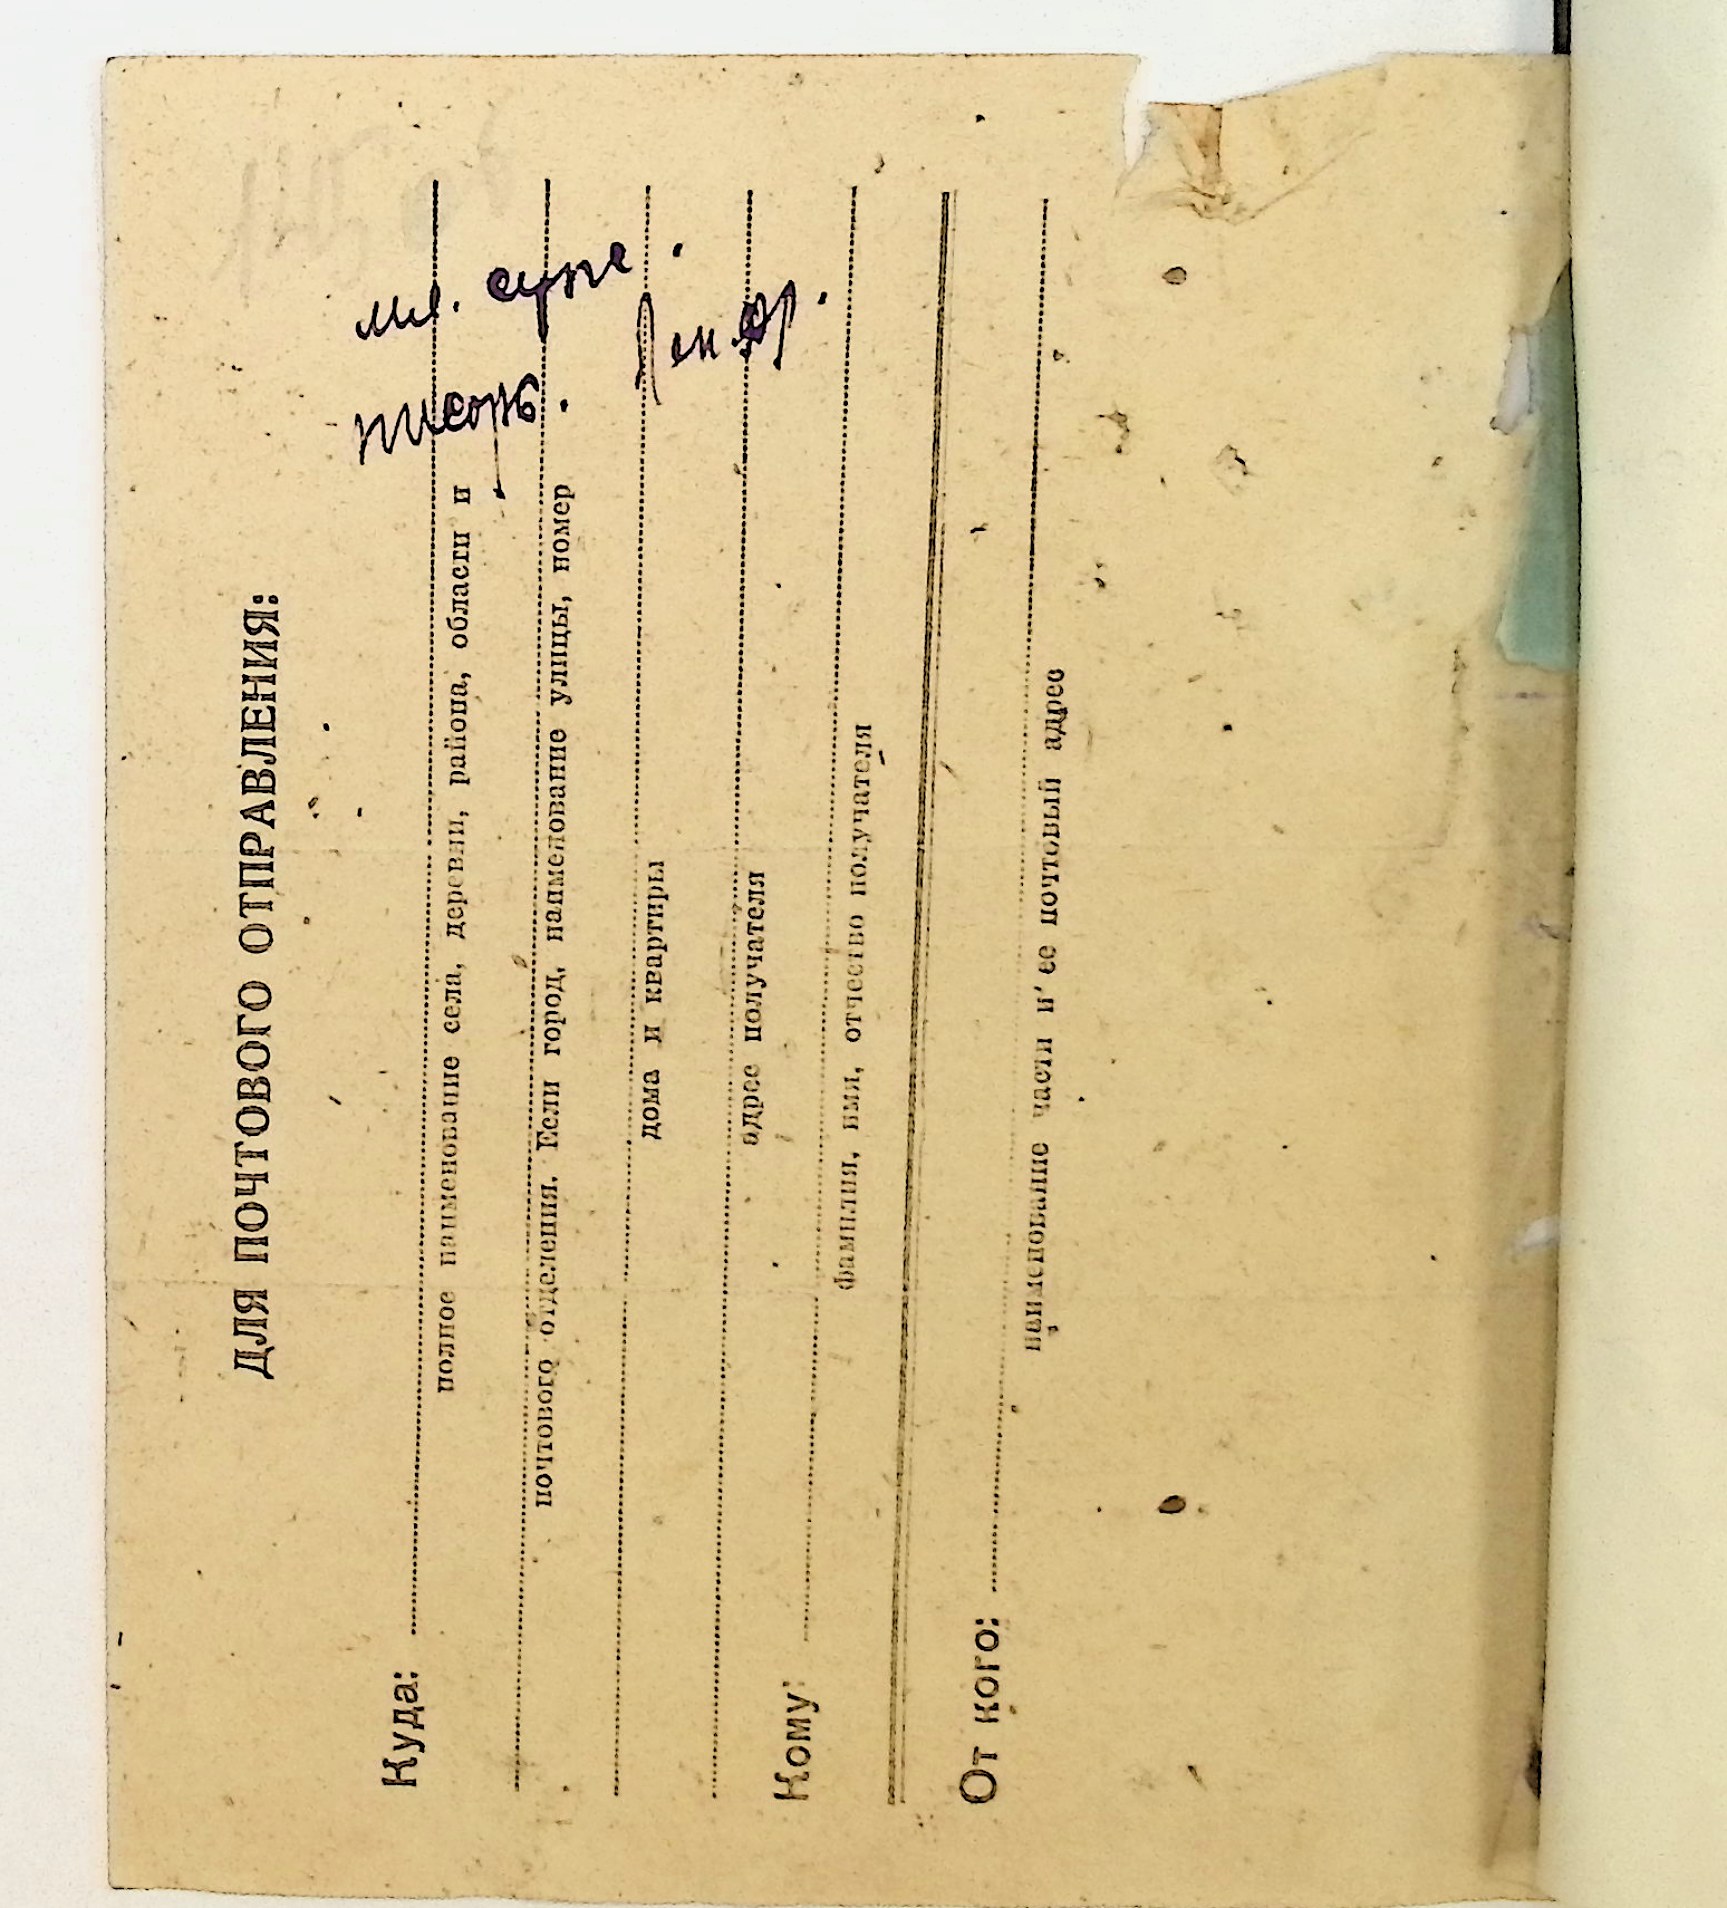 ДЛЯ ПОЧТОВОГО ОТПРАВЛЕНИЯ:
мл. серж.
писарь.
Лен.Фр.
Куда:
полное наименование села, деревни, района, области и
почтового отделения. Если город, наименование улицы, номер
дома и квартиры
адрес получателя
Кому:
фамилия, имя, отчество получателя
От кого:
наименование части и ее почтовый адрес